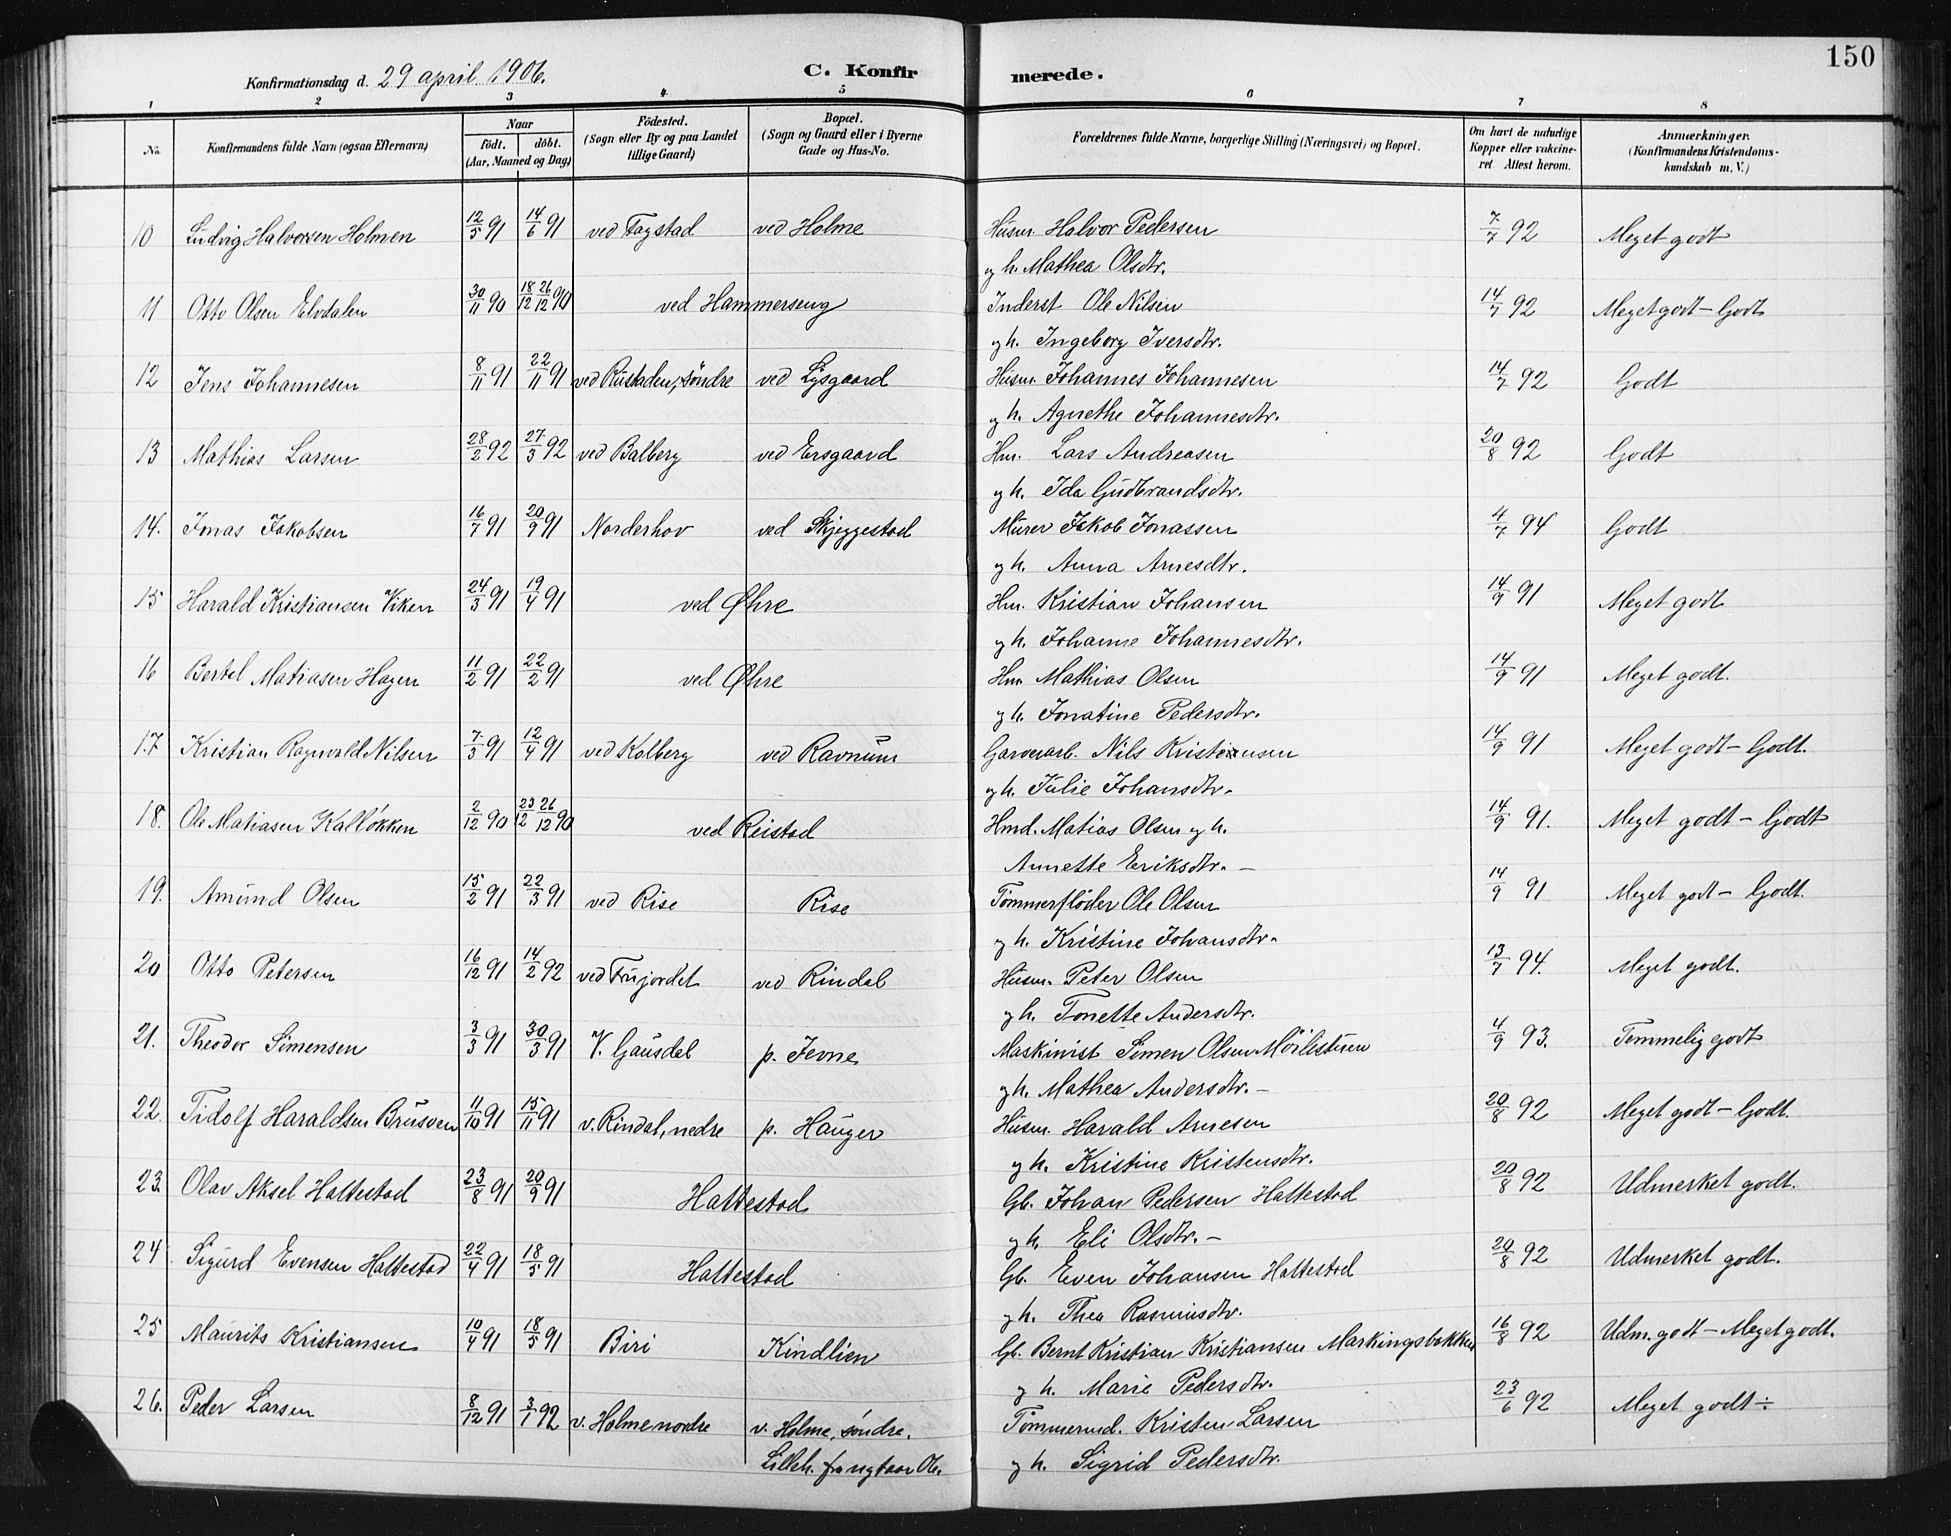 150
Konfirmationsdag d. 29 april 1906. C. Konfirmerede.
1 2 3 4 5 6 7 8
No. Konfirmandens fulde Navn (ogsaa Efternavn) Naar födt. döbt. (Aar, Maaned og Dag) Födested. (Sogn eller By og paa Landet tillige Gaard) Bopæl. (Sogn og Gaard eller i Byerne Gade og Hus-No. Forældrenes fulde Navne, borgerlige Stilling (Næringsvei) og Bopæl. Om havt de naturlige Kopper eller vakcineret Attest herom. Anmærkninger. (Konfirmandens Kristendomskundskab m. V.)
10 Ludvig Halvorsen Holmen 12/5 91 14/6 91 ved Fagstad ved Holme Husm. Halvor Pedersen 7/7 92 Meget godt
og h. Mathea Olsdtr.
11 Otto Olsen Elvdalen 30/11 90 18/12 26/12 90 ved Hammerseng Inderst Ole Nilsen 14/7 92 Meget godt – Godt
og h. Ingeborg Iversdtr.
12 Jens Johannesen 8/11 91 22/11 91 ved Rustaden, søndre ved Lysgaard Husm. Johannes Johannesen 14/7 92 Godt
og h. Agnethe Johannesdtr.
13 Mathias Larsen 28/2 92 27/3 92 ved Balberg ved Ersgaard Hm. Lars Andreasen 20/8 92 Godt
og h. Ida Gudbrandsdtr.
14. Jonas Jakobsen 16/7 91 20/9 91 Norderhov ved Skjeggestad Murer Jakob Jonassen 4/7 94 Godt
og h. Anna Arnesdtr.
15 Harald Kristiansen Viken 24/3 91 19/4 91 ved Øhre Hm. Kristian Johansen 14/9 91 Meget godt
og h. Johanne Johannesdtr.
16 Bertel Matiasen Hagen 11/2 91 22/2 91 ved Øhre Hm. Mathias Olsen 14/9 91 Meget godt.
og h. Jonatine Pedersdtr.
17 Kristian Ragnvald Nilsen 7/3 91 12/4 91 ved Kolberg ved Ravnum Garverarb. Nils Kristiansen 14/9 91 Meget godt – Godt.
og h. Julie Johansdtr.
18. Ole Matiasen Kalløkken 2/12 90 23/12 26/12 90 ved Reistad Hmd. Matias Olsen og h. 14/9 91. Meget godt – Godt
Annette Eriksdtr. –
19. Amund Olsen 15/2 91 22/3 91 ved Rise Rise Tømmerfløder Ole Olsen 14/9 91 Meget godt – Godt.
og h. Kristine Johansdtr.
20 Otto Petersen 16/12 91 14/2 92 ved Frujordet ved Rindal Husm. Peter Olsen 13/7 94. Meget godt.
og h. Tonette Andersdtr.
21. Theodor Simensen 3/3 91 30/3 91 V. Gausdal p. Jevne Maskinist Simen Olsen Møilistuen 4/9 93. Temmelig godt
og h. Mathea Andersdtr. –
22. Tidolf Haraldsen Brusven 11/10 91 15/11 91 v. Rindal, nedre p. Hauger Husm. Harald Arnesen 20/8 92 Meget godt – Godt.
og h. Kristine Kristensdtr.
23. Olav Aksel Hattestad 23/8 91 20/9 91 Hattestad Gb. Johan Pedersen Hattestad 20/8 92 Udmerket godt.
og h. Eli Olsdtr. –
24 Sigurd Evensen Hattestad 22/4 91 18/5 91 Hattestad Gb. Even Johansen Hattestad 20/8 92 Udmerket godt.
og h. Thea Rasmusdtr.
25 Maurits Kristiansen 10/4 91 18/5 91 Biri Kindlien Gb. Bernt Kristian Kristiansen Markingsbakken 16/8 92 Udm. godt – Meget godt.
og h. Marie Pedersdtr.
26. Peder Larsen 8/12 91 3/1 92 v. Holme nordre v. Holme, søndre. Tømmermd. Kristen Larsen 23/6 92 Meget godt ÷
Lilleh. og h. Sigrid Pedersdtr.